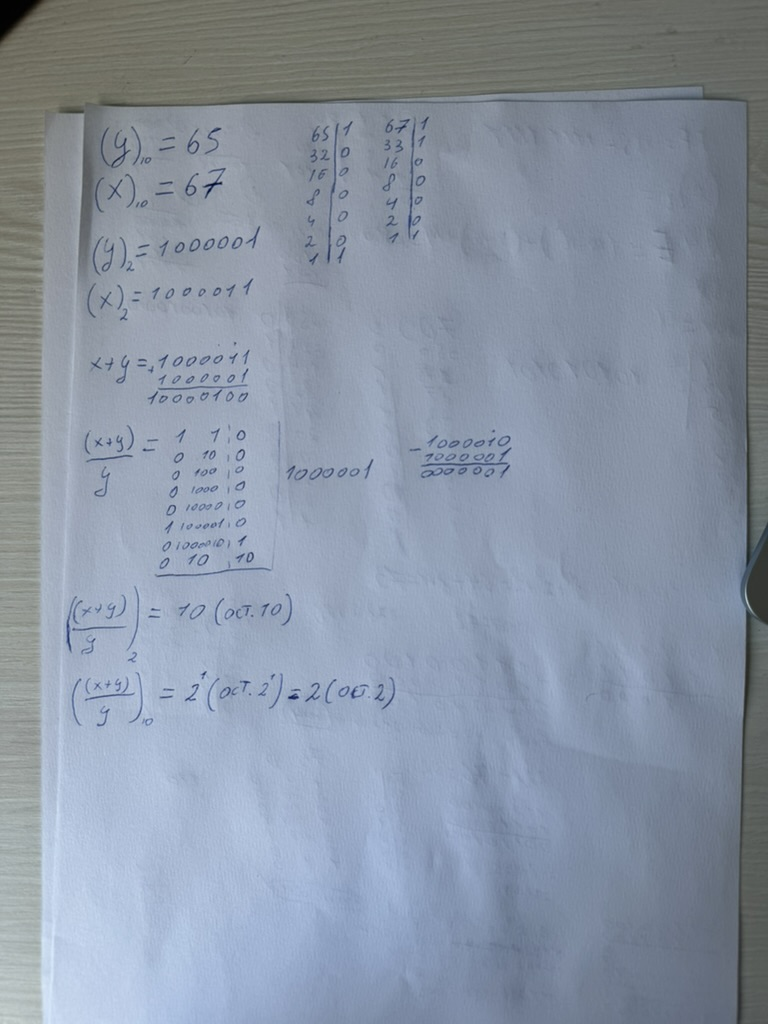 (y)₁₀ = 65
(x)₁₀ = 67
65|1
32|0
16|0
8|0
4|0
2|0
1|1
67|1
33|1
16|0
8|0
4|0
2|0
1|1
(y)₂ = 1000001
(x)₂ = 1000011
x+y = +1000011
1000001
10000100
(x+y)/y =
1 1 0
0 10 0
0 100 0
0 1000 0
0 10000 0
1 100001 0
0 1000010 1
0 10 10
1000001
-1000010
1000001
0000001
((x+y)/y)₂ = 10 (ост. 10)
((x+y)/y)₁₀ = 2¹ (ост. 2¹) = 2 (ост. 2)